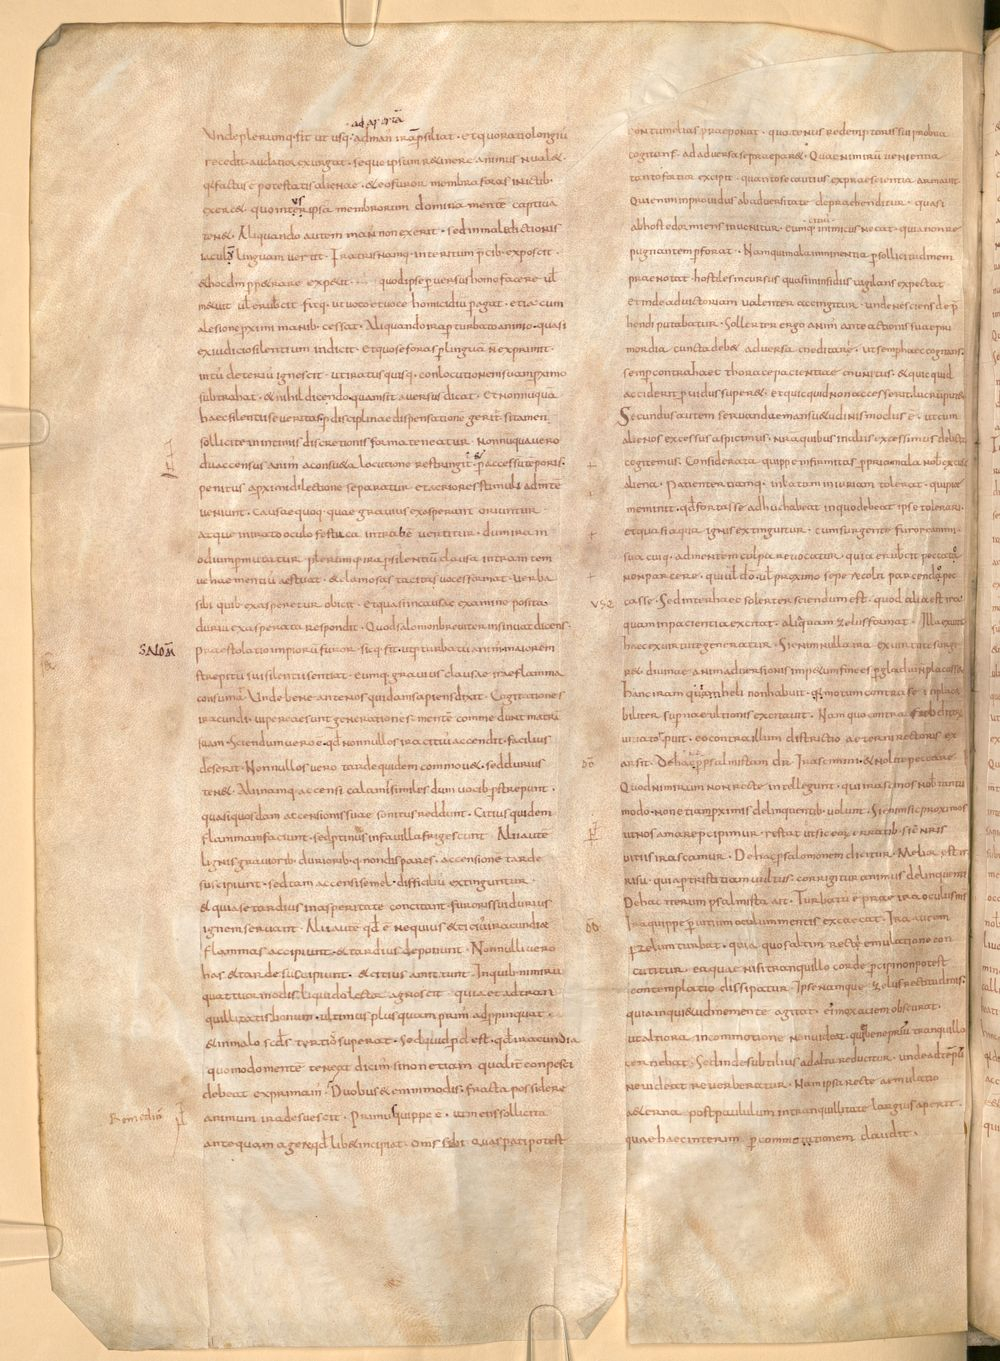 ad aperta
Unde plerumq; fit ut usq; ad man' ira psiliat · et quo ratio longiu
recedit · audatia exurgat · seq; ipsum retinere animus n ualet
q; factus e potestatis alienae · & eo furor membra foras inictib;
exercet quo intus ipsa membrorum domina mente captiua
tenet · Aliquando autem man' non exerit · sed in maledictionis
iaculu linguam uertit · Fratris namq; interitum pcib; exposcit ·
& hoc dm ppetrare expetit · quod ipse peruersus homo facere ul
metuit ul erubescit · fitq; ut uoto et uoce homicidiu pagat · etia cum
a lesione pximi manib; cessat · Aliquando ira pturbato animo · quasi
ex iudicio silentium indicit · Et quo se foras p lingua n exprimit ·
intus deterius ignescit · ut iratus quisq; conlocutionem suam pximo
subtrahat · & nihil dicendo quam sit auersus dicat · Et nonnuqua
haec silentii seueritas p disciplinae dispensatione gerit · si tamen
sollicite in intimis discretionis forma teneatur · Nonnuqua uero
du accensus anim' a consueta locutione restringit · p accessu teporis ·
penitus a pximi dilectione separatur · et acriores stimuli ad mente
ueniunt · Causae quoq; quae grauius exasperant oriuntur ·
atque in irato oculo festuca in trabe uertitur · du ira in
odium pmutatur · plerumq; ira p silentiu clausa intra mentem
uehementius aestuat · & clamosas tacita uoces format · uerba
sibi quib; exasperetur obicit · et quasi in causae examine posita
durius exasperata respondit · Quod salomon breuiter insinuat dicens ·
SALOM
Praestolatio impioru furor · sicq; fit ut pturbatus anim' maiorem
strepitu sui silentii sentiat · eumq; grauius clausae irae flamma
consumat · Unde bene ante nos quidam sapiens dixit · Cogitationes
iracundi uiperae sunt generationes · mente comedunt matre
suam · Sciendum uero e · qd nonnullos ira citius accendit · facilius
deserit · Nonnullos uero tarde quidem commouet · sed durius
tenet · Alii namq; accensi calamis similes dum uocib; pstrepunt ·
quasi quosdam accensionis suae sonitus reddunt · Citius quidem
flammam faciunt · sed ptinus in fauilla frigescunt · Alii aute
lignis grauiorib; duriorib;q; non dispares · accensione tarde
suscipiunt · sed tam accensi semel · difficilius extinguntur ·
& quia se tardius in asperitate concitant · furoris sui durius
ignem seruant · Alii aute qd e nequius & citius iracundiae
flammas accipiunt · & tardius deponunt · Nonnulli uero
has & tarde suscipiunt · & citius amittunt · In quib; nimiru
quattuor modis liquido lector agnoscit · quia et ad tran
quillitatis bonum · ultimus plus quam prim' adppinquat ·
& in malo scds tertiu superat · Sed quid pd est · qd iracundia
quomodo mente teneat dicim' · si non etiam qualit' conpesci
debeat exprimam' · Duobus etenim modis · fracta possidere
Remediu
animum ira desuescit · Primus quippe e · ut mens sollicita
antequam agere qd libet incipiat · oms sibi quas pati potest
contumelias praeponat · quatenus redemptoris sui probra
cogitans · ad aduersa se praeparet · Quae nimiru uenientia
tanto fortior excipit · quanto se cautius ex praescientia armauit
Qui enim inprouidus ab aduersitate depraehenditur · quasi
ab hoste dormiens inuenitur · eumq; citius inimicus necat · qua non re
pugnantem pforat · Nam qui mala imminentia p sollicitudinem
praenotat · hostiles incursus quasi in insidiis uigilans expectat
et inde ad uictoriam ualenter accingitur · unde nesciens dep
hendi putabatur · Sollerter ergo anim' ante actionis suae pri
mordia cuncta debet aduersa meditari · ut semp haec cogitans ·
semp contra haec thorace pacientiae munitus · & quicquid
acciderit puidus superet · et quicquid non accesserit lucru putet
Secundus autem seruandae mansuetudinis modus e · ut cum
alienos excessus aspicimus · nra quibus in aliis excessimus delicta
cogitemus · Considerata quippe infirmitas ppria mala nob excusat
aliena · Patienter namq; inlatam iniuriam tolerat · qui pie
meminit · qd fortasse adhuc habeat in quo debeat ipse tolerari ·
et quasi aqua ignis extinguitur · cum surgente furore animi ·
sua cuiq; ad mentem culpa reuocatur · quia erubescit peccata
non parcere · qui uel do · ul proximo sepe recolit parcenda pec
USQ
casse · Sed inter haec solerter sciendum est · quod alia est ira
quam inpacientia excitat · alia quam zelus format · Illa ex uitio
haec ex uirtute generatur · Si enim nulla ira ex uirtute surge
ret · diuinae animaduersionis impetum finees p gladiu n placasset
hanc iram quia heli non habuit · motum contra se inplaca
biliter supnae ultionis excitauit · Nam quo contra subditor
uitia tepuit · eo contra illum districtio aeterni rectoris ex
DO
arsit · De hac p psalmistam dr · Irascimini · & nolite peccare
Quod nimirum non recte intellegunt · qui irasci nos nob tantu
modo · non etiam pximis delinquentib; uolunt · Si enim sic proximos
ut nos amare pcipimur · restat ut sic eor erratib; sic nris
uitiis irascamur · De hac p salomonem dicitur · Melior est ira
risu · quia p tristitiam uultus · corrigitur animus delinquentis
De hac iterum psalmista ait · Turbatus e prae ira oculus ms
DO
Ira quippe p uitium oculum mentis excaecat · Ira autem
p zelum turbat · quia quo saltim recte emulatione con
cutitur · ea quae nisi tranquillo corde pcipi non potest
contemplatio dissipatur · Ipse namque zelus rectitudinis ·
quia inquietudine mente agitat · ei' mox aciem obscurat ·
ut altiora in commotione non uideat · quae bene prius tranquilla
cernebat · Sed inde subtilius ad alta reducitur · unde ad temp'
ne uideat reuerberatur · Nam ipsa recte aemulatio
aeterna post paululum in tranquillitate largius aperit ·
quae haec interim p commotionem claudit ·